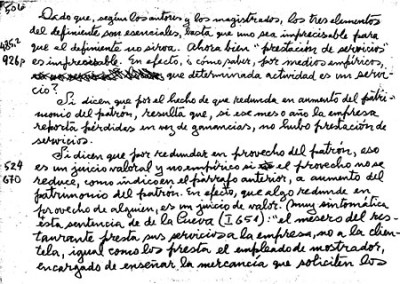 506
Dado que, según los autores y los magistrados, los tres elementos
del definiente son esenciales, basta que uno sea imprecisable para
485.2 que el definiente no sirva. Ahora bien "prestación de servicios"
926p es imprecisable. En efecto, ¿cómo saber, por medios empíricos,
que determinada actividad es un servi-
cio?
Si dicen que por el hecho de que redunda en aumento del patri-
monio del patrón, resulta que, si ese mes o año la empresa
reporta pérdidas en vez de ganancias, no hubo prestación de
servicios.
Si dicen que por redundar en provecho del patrón, eso
524 es un juicio valoral y no empírico si el provecho no se
670 reduce, como indico en el párrafo anterior, a aumento del
patrimonio del patrón. En efecto, que algo redunde en
provecho de alguien, es un juicio de valor. Muy sintomática
esta sentencia de de la Cueva (I 654): "el mesero del res-
taurante presta sus servicios a la empresa, no a la clien-
tela, igual como los presta el empleado de mostrador,
encargado de enseñar la mercancía que soliciten los